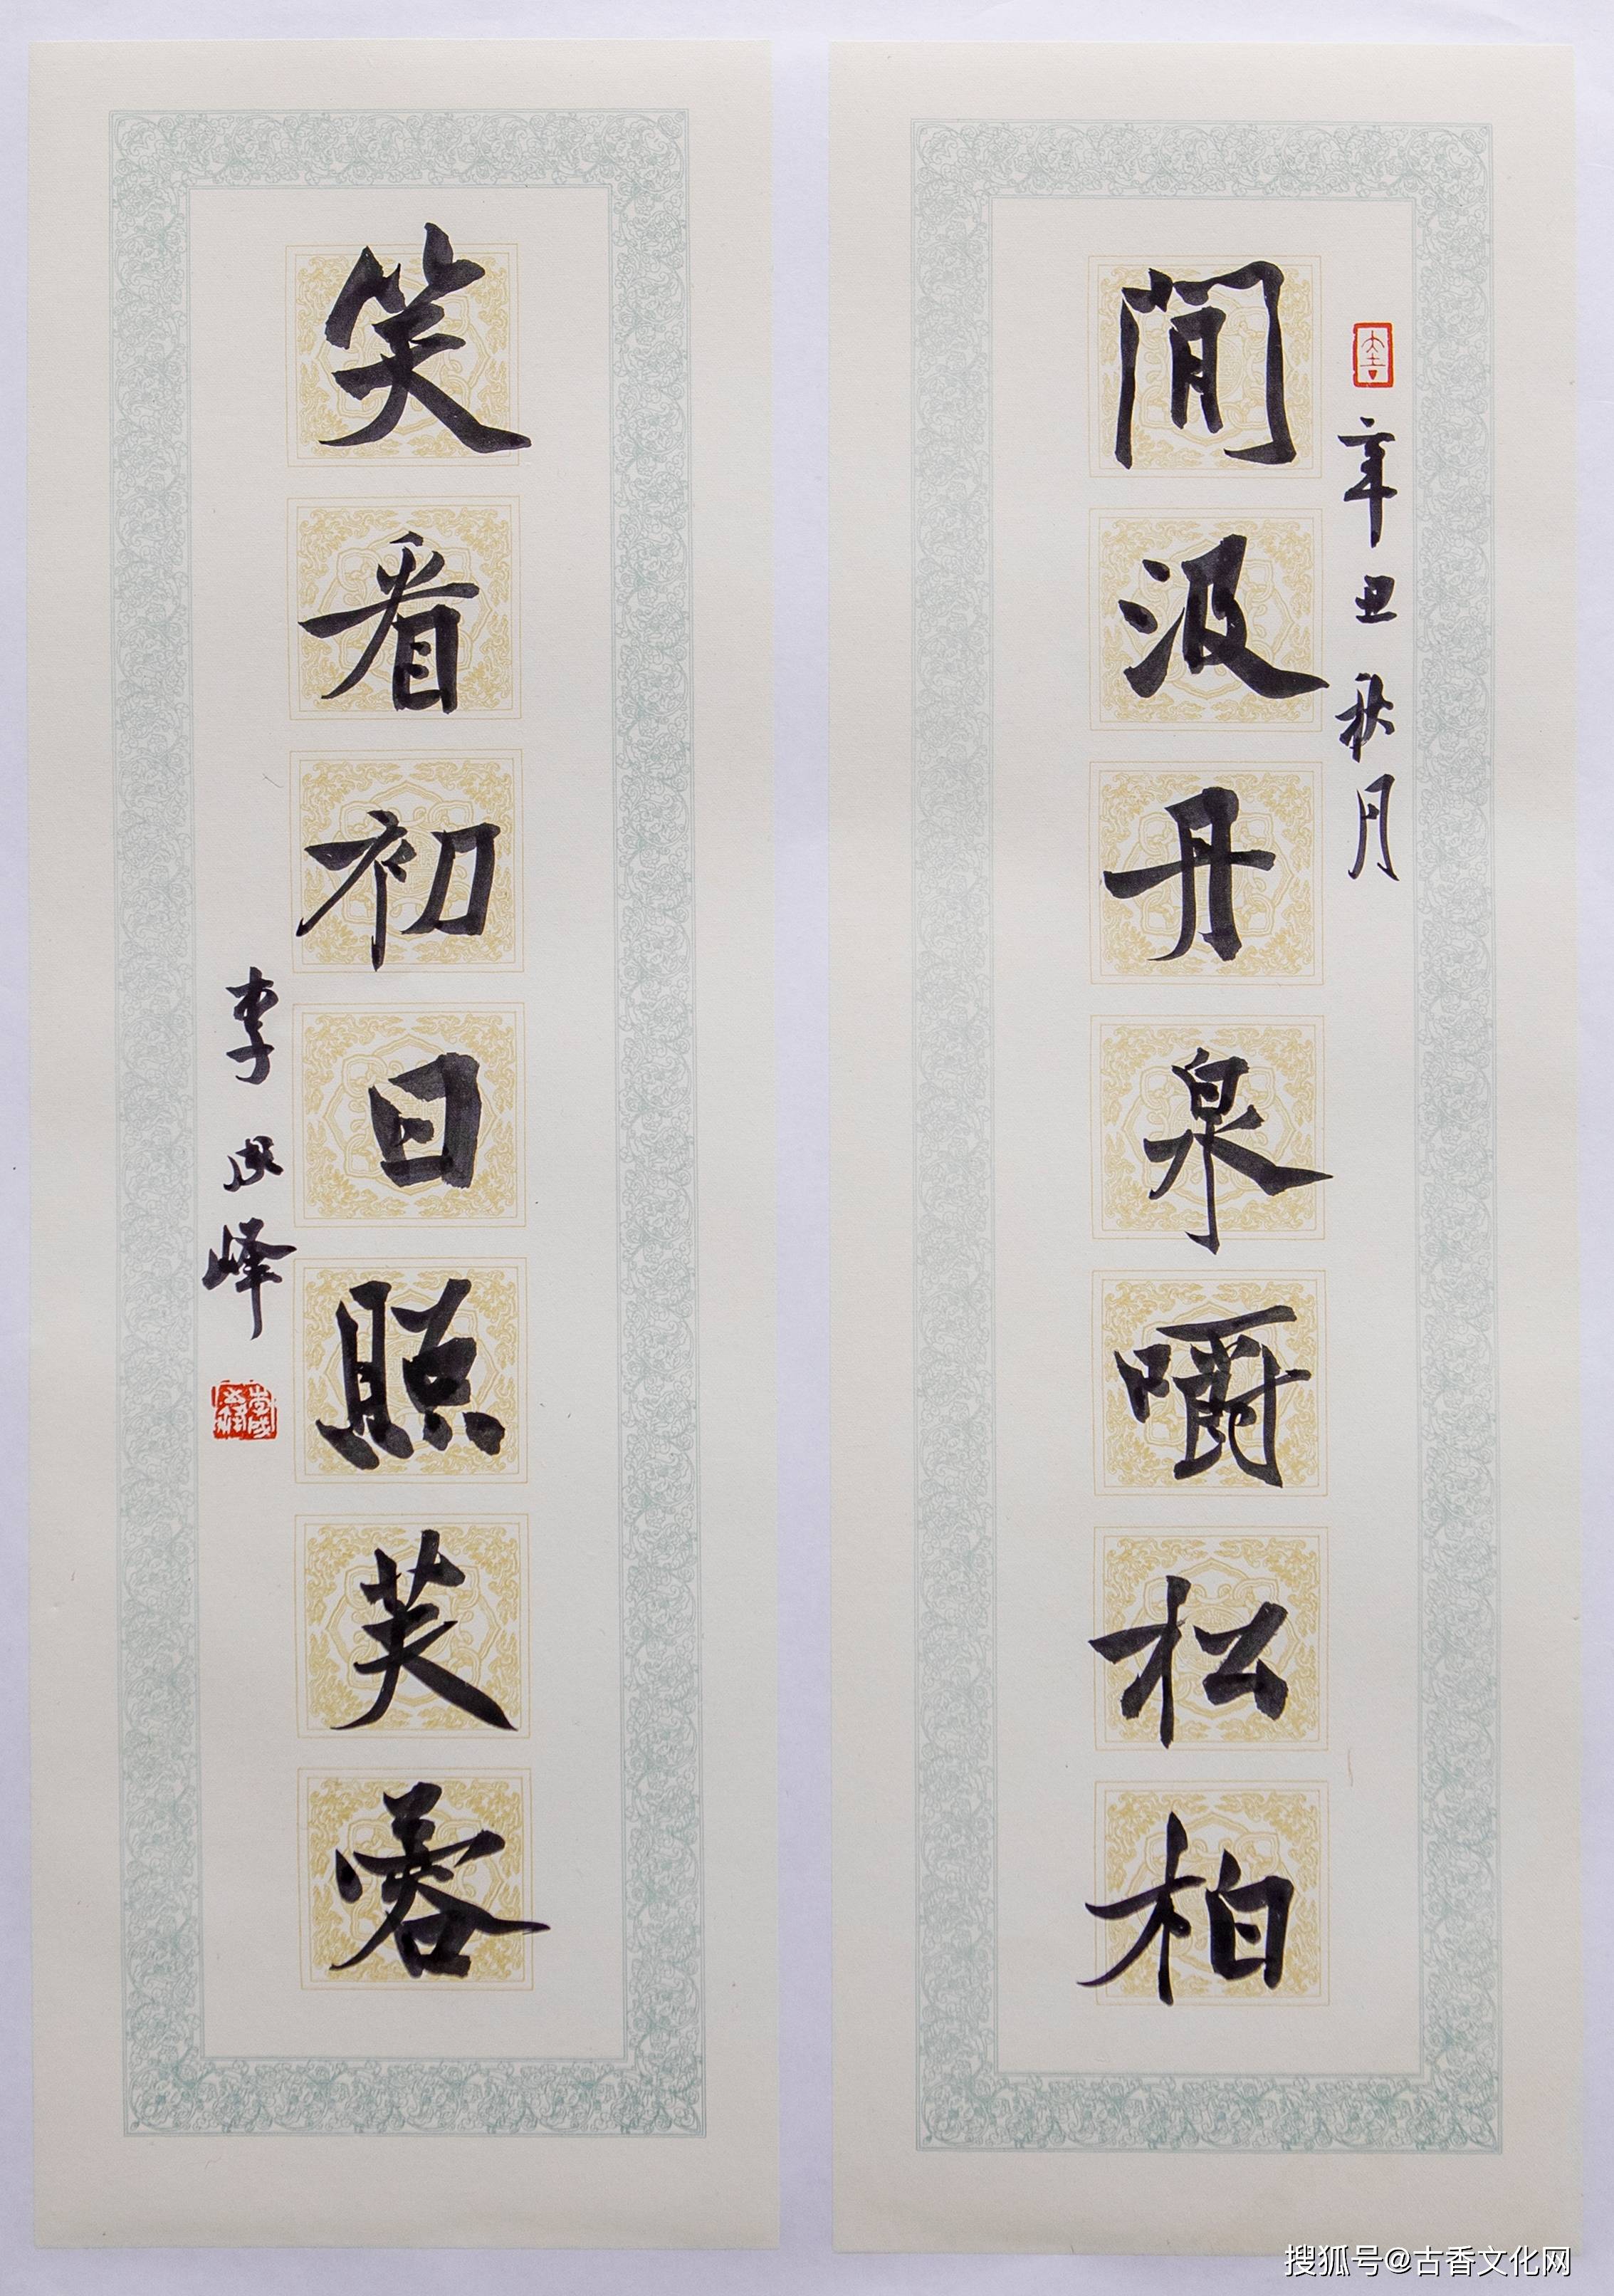 辛丑秋月
閒汲丹泉嚼松柏
笑看初日照芙蓉
李成峰
搜狐号@古香文化网